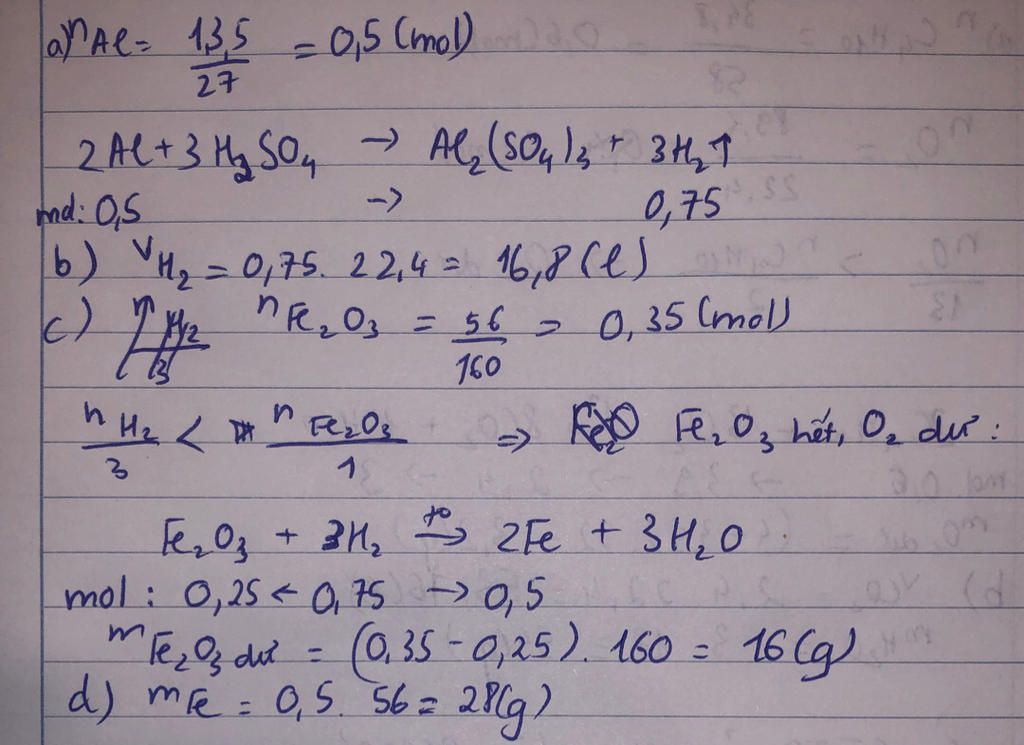 a) nAl = 13,5/27 = 0,5 (mol)
2Al + 3H₂SO₄ → Al₂(SO₄)₃ + 3H₂↑
mol: 0,5 → 0,75
b) VH₂ = 0,75. 22,4 = 16,8 (l)
c) nFe₂O₃ = 56/160 = 0,35 (mol)
nH₂/3 < nFe₂O₃/1 => Fe₂O₃ hết, O₂ dư:
Fe₂O₃ + 3H₂ –t°→ 2Fe + 3H₂O
mol: 0,25 ← 0,75 → 0,5
mFe₂O₃ dư = (0,35 - 0,25). 160 = 16 (g)
d) mFe = 0,5. 56 = 28 (g)